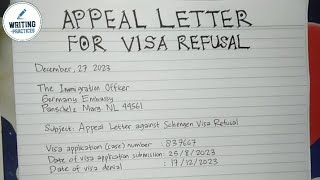 WRITING
PRACTICES
APPEAL LETTER
FOR VISA REFUSAL
December, 27 2023
The Immigration Officer
Germany Embassy
Subject: Appeal Letter against Schengen Visa Refusal
Visa application (case) number : 837667
Date of visa application submission : 25/8/2023
Date of visa denial : 17/12/2023